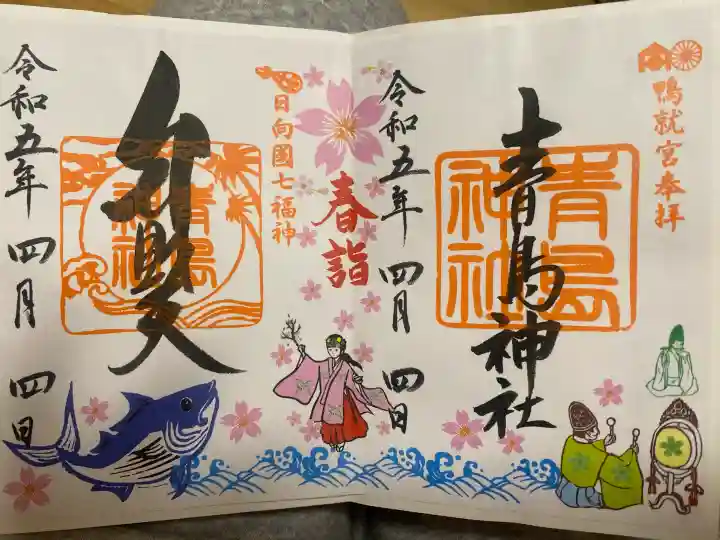 鴨就宮奉拝
青島神社
青島神社
令和五年 四月 四日
春詣
日向國七福神
弁財天
青島神社
令和五年 四月 四日